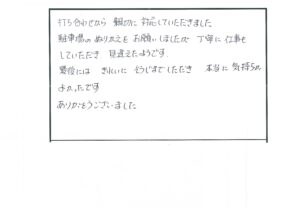 打ち合わせから 親切に 対応していただきました
駐車場の ぬりかえを お願いしましたが 丁寧に 仕事を
していただき 見違えたようです
最后には きれいに そうじまでしただき 本当に 気持ちが
よかったです
ありがとうございました